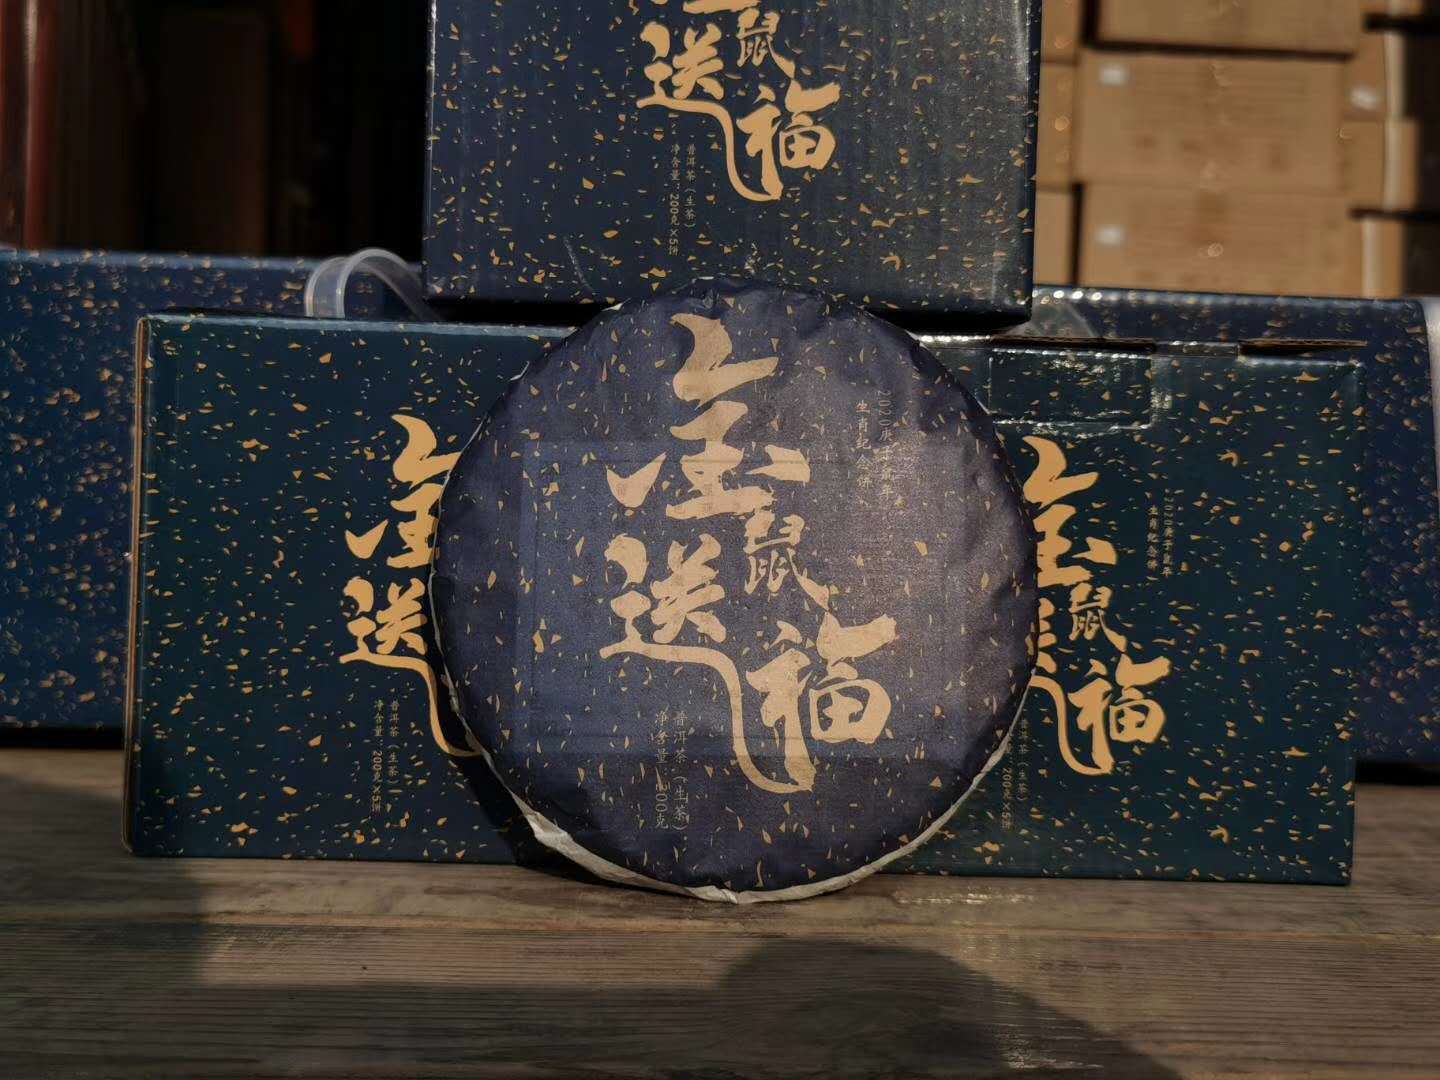 鼠
送
福
普洱茶（生茶）
净含量：200g×5饼
金
鼠
送
福
2020庚子鼠年
生肖纪念饼
普洱茶（生茶）
净含量：200克
金
送
普洱茶（生茶）
净含量：200g×5饼
金
鼠
福
2020庚子鼠年
生肖纪念饼
普洱茶（生茶）
200g×5饼